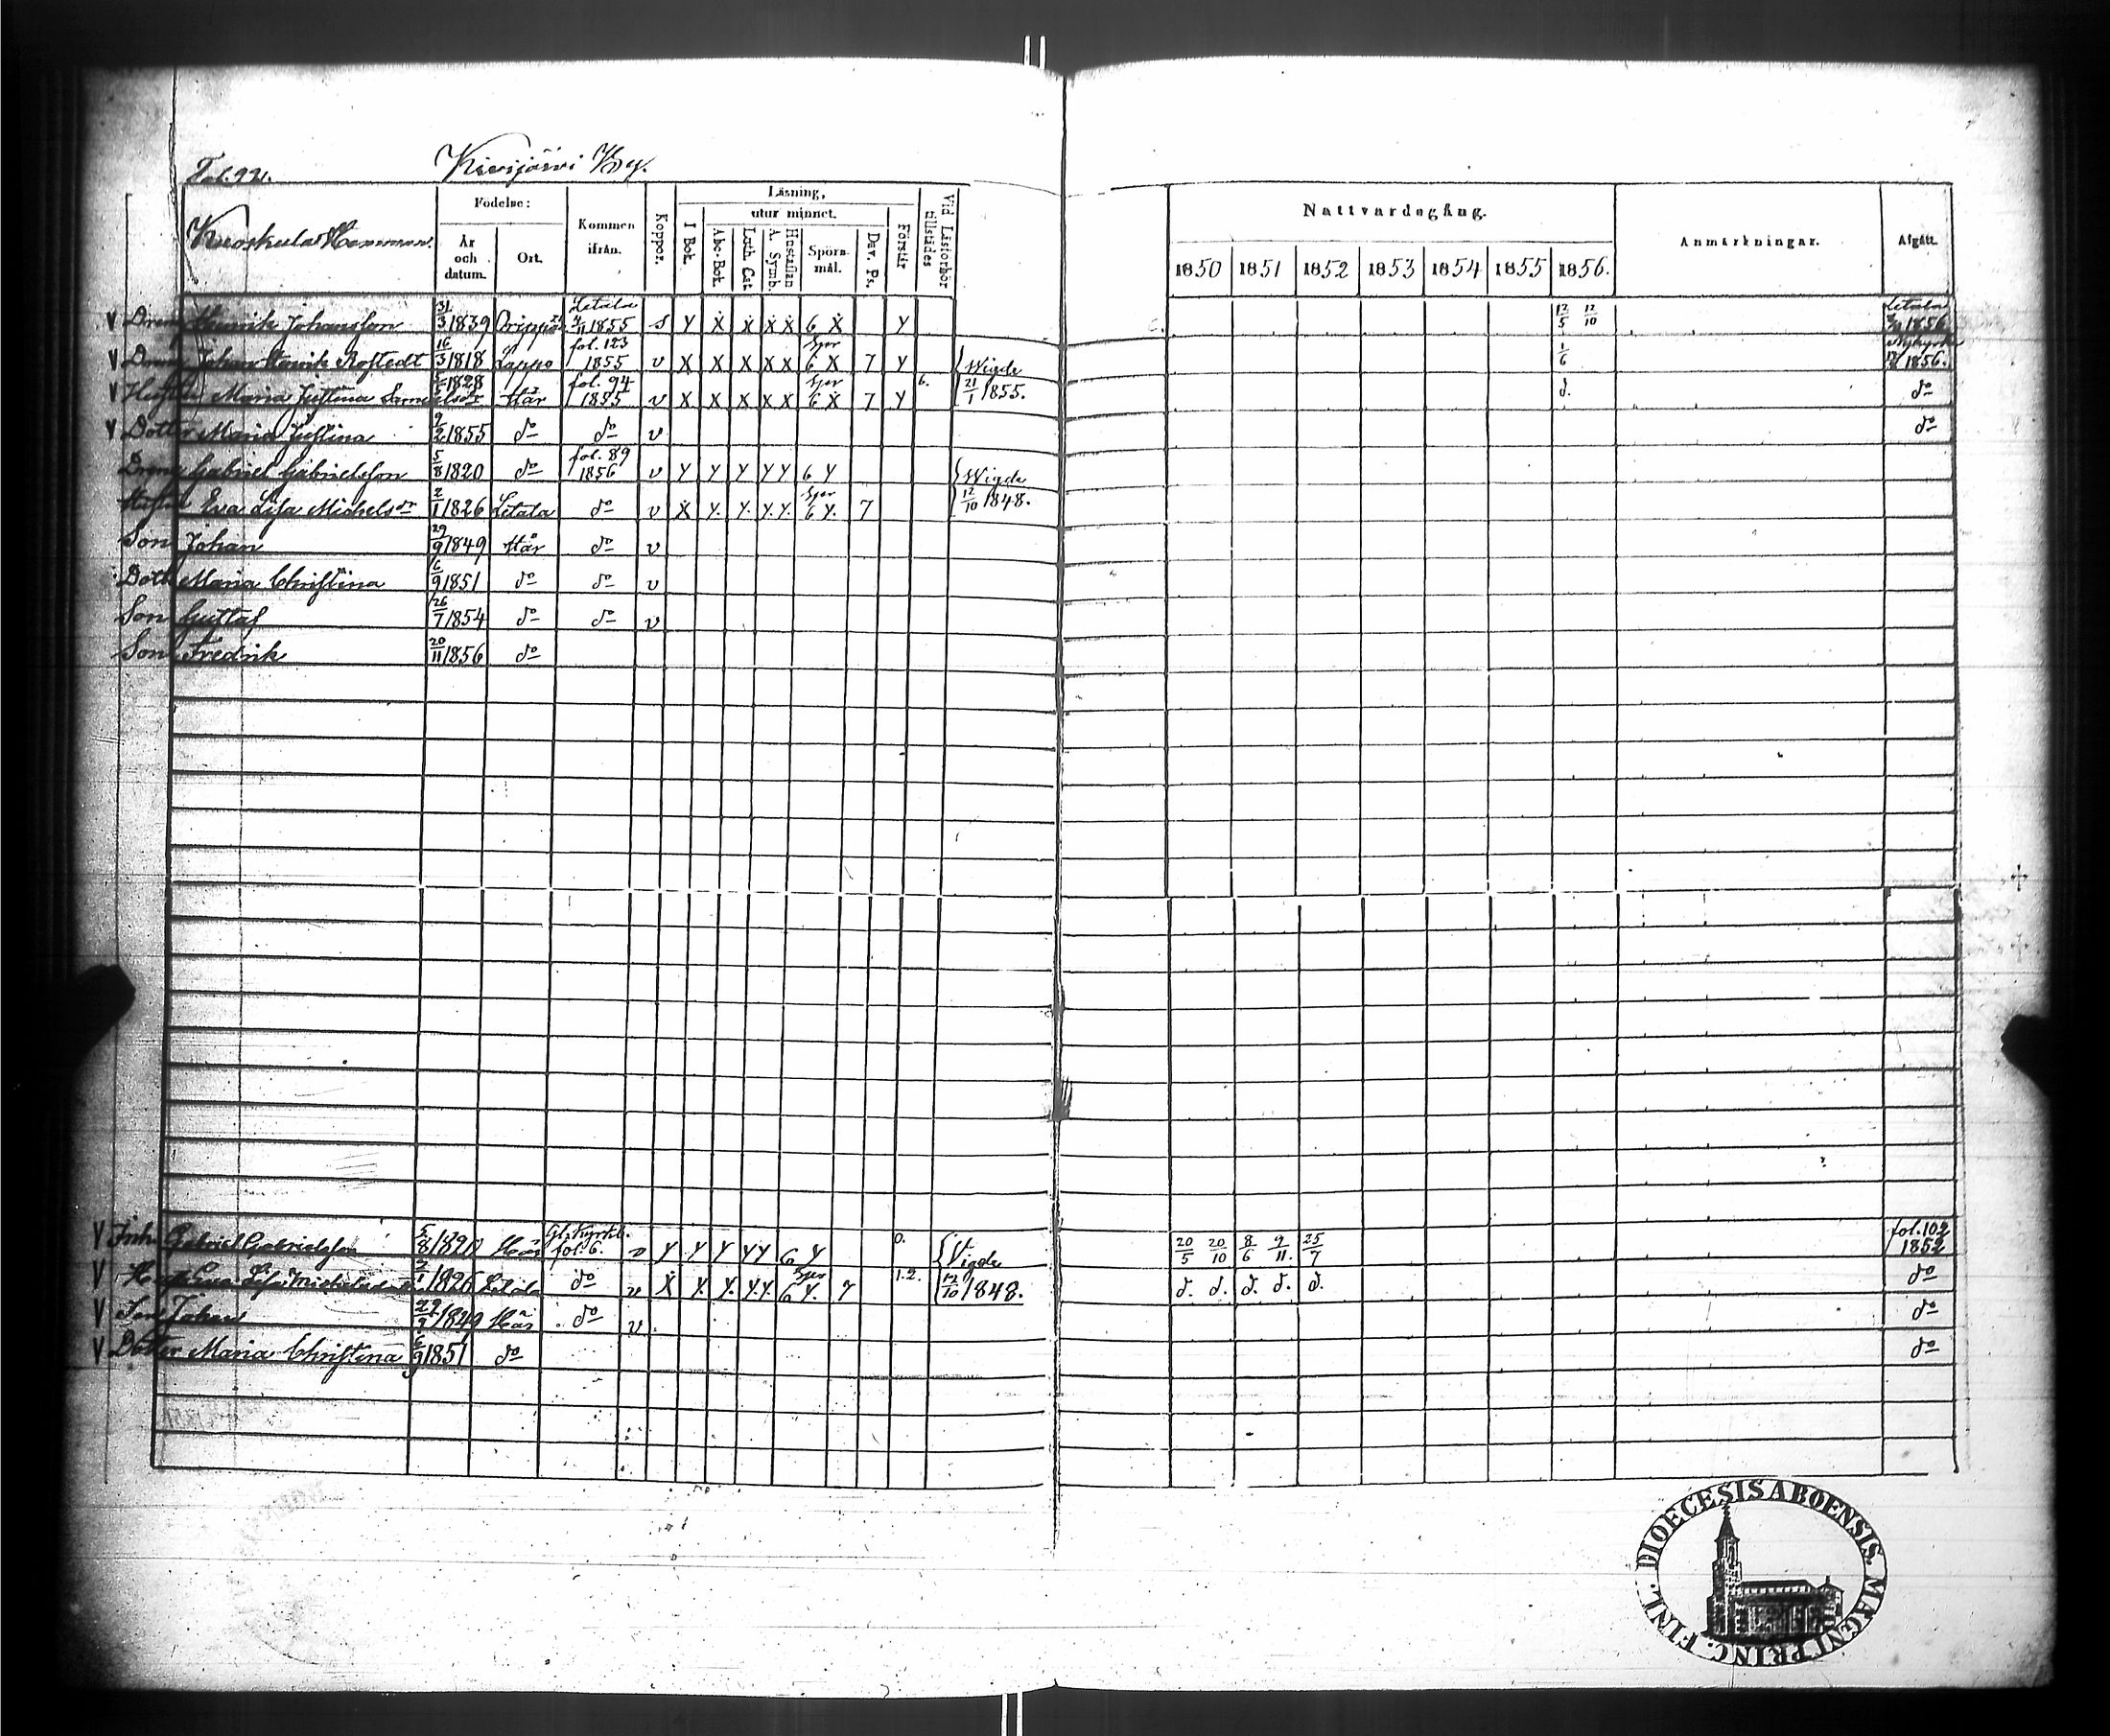 Fol. 92. Kivijärvi By.
Hemman.
Födelse: År och datum. Ort.
Kommen ifrån.
Koppor.
Läsning, utur minnet.
I Bok. Abc-Bok. Luth. Cat. A. Symb. Hustaflan Spörsmål. Dav. Ps. Förstår
Vid Läsförhör tillstädes
Nattvardsgång.
1850 1851 1852 1853 1854 1855 1856.
Anmärkningar.
Afgått.
V Dreng Henrik Johansson 31/3 1839 Letala 1855 s Y X X X X 6 X Y 12/5 12/10 Letala 1856
V Johan Henrik Rostedt 16/3 1818 Lappo fol. 123 1855 v X X X X X Spr 6 X 7 Y { Wigde 1/6 Nykyrka 1856.
V Hustru Maria Justina Samuelsdr 1828 Här fol. 94 1855 v X X X X X Spr 6 X 7 Y 6. 21/1 1855. d. do
V Dotter Maria Justina 9/2 1855 do do v do
Dreng Gabriel Gabrielsson 5/8 1820 do fol. 89 1856 v Y Y Y Y Y 6 Y { Wigde
Hustru Eva Lisa Michelsdr 2/1 1826 Letala do v X Y. Y. Y. Y. Spr 6 Y. 7 12/10 1848.
Son Johan 29/9 1849 Här do v
Dott. Maria Christina 6/9 1851 do do v
Son Gustaf 26/7 1854 do do v
Son Fredrik 20/11 1856 do
V Inh. Gabriel Gabrielsson 5/8 1820 Här Gl. Kyrkb. fol. 6. v Y Y Y Y Y 6 Y 0. { Vigde 20/5 20/10 8/6 9/11. 25/7 fol. 102 1852
V Hust. Eva Lisa Michelsdr 2/1 1826 Letala do v X Y. Y. Y. Y. Spr 6 Y. 7 1.2. 12/10 1848. d. d. d. d. d. do
V Son Johan 29/9 1849 Här do v. do
V Dotter Maria Christina 6/9 1851 do do
DIOECESIS ABOENSIS. MAGNI PRINC. FINL.